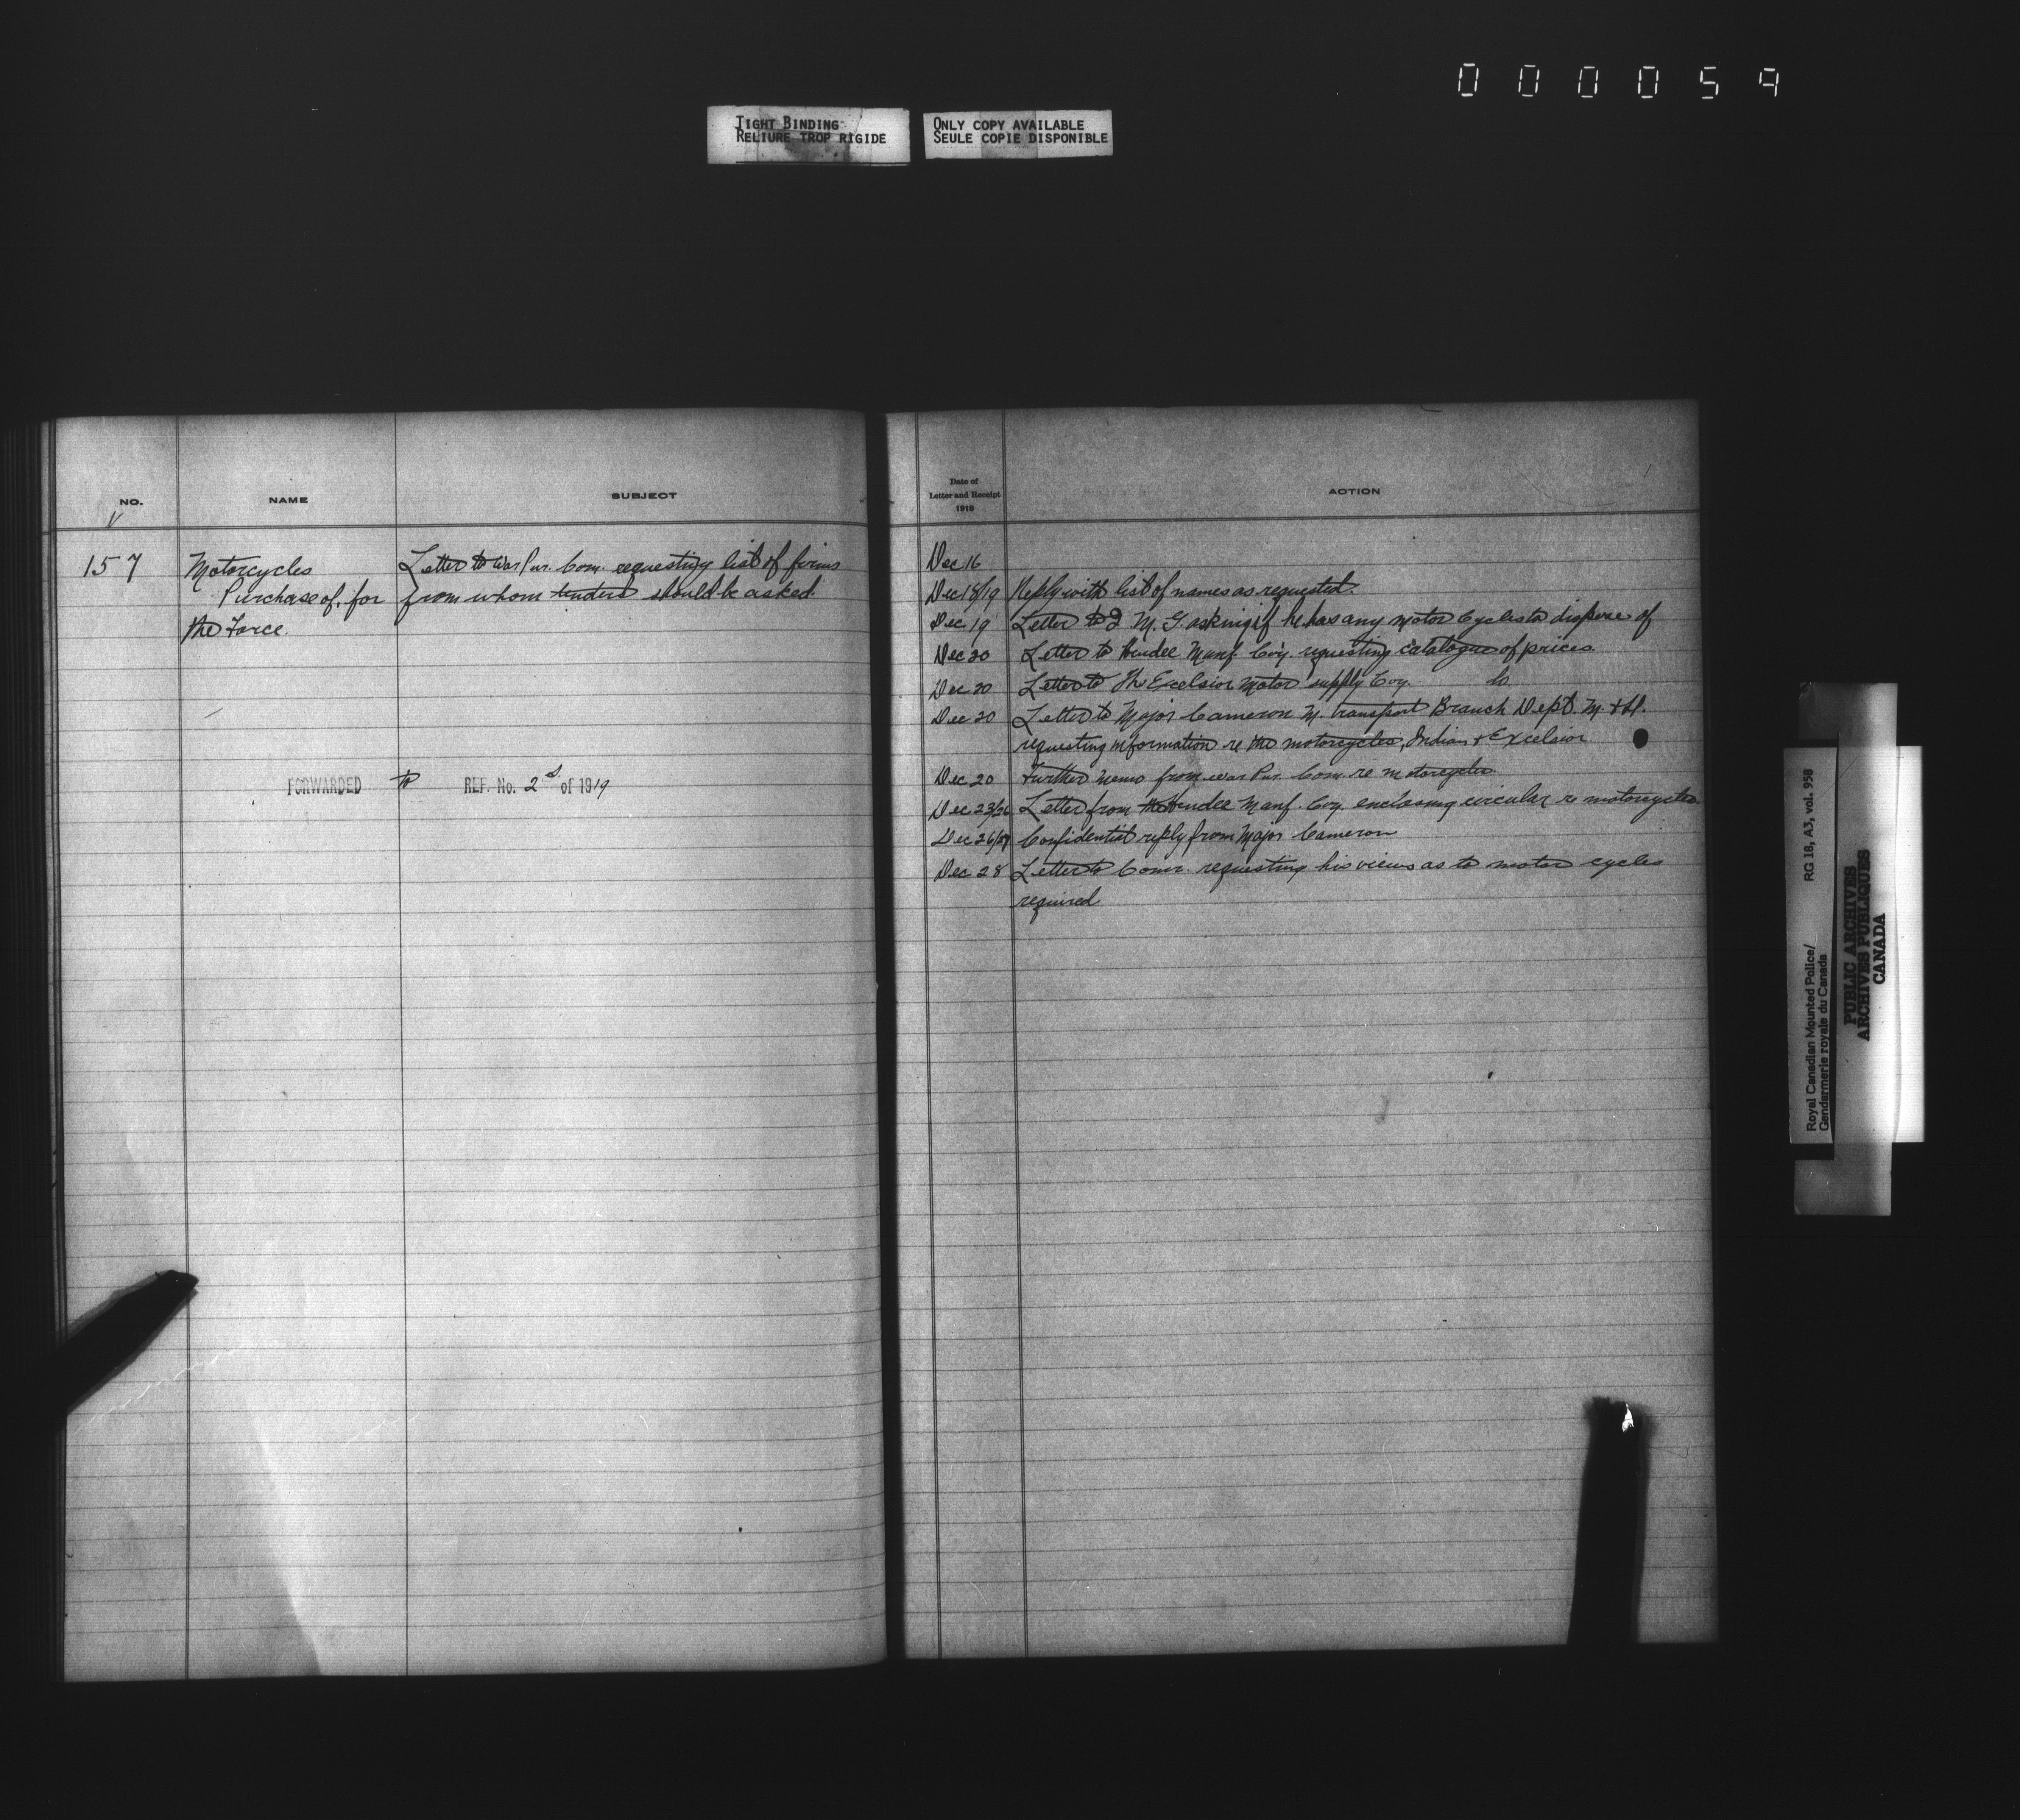 000059
TIGHT BINDING
RELIURE TROP RIGIDE
ONLY COPY AVAILABLE
SEULE COPIE DISPONIBLE
NO.
NAME
SUBJECT
157
Motorcycles
Purchase of, for
the Force.
Letter to War Pur. Com. requesting list of firms
from whom tenders should be asked
FORWARDED to REF. No. 2 of 1919
Date of
Letter and Receipt
1918
ACTION
Dec 16
Dec 18/19 Reply with list of names as requested.
Dec 19 Letter to Q M. G. asking if he has any motor cycles to dispose of
Dec 20 Letter to Hendee Manf. Coy. requesting catalogue of prices.
Dec 20 Letter to The Excelsior Motor supply Coy. do
Dec 20 Letter to Major Cameron M. Transport Branch Dept. M. & D.
requesting information re the motorcycles, Indian & Excelsior
Dec 20 Further memo from War Pur. Com. re motorcycles.
Dec 23/26 Letter from the Hendee Manf. Coy. enclosing circular re motorcycles.
Dec 26/27 Confidential reply from Major Cameron
Dec 28 Letter to Comr. requesting his views as to motor cycles
required
Royal Canadian Mounted Police/
Gendarmerie royale du Canada
RG 18, A3, vol. 958
PUBLIC ARCHIVES
ARCHIVES PUBLIQUES
CANADA